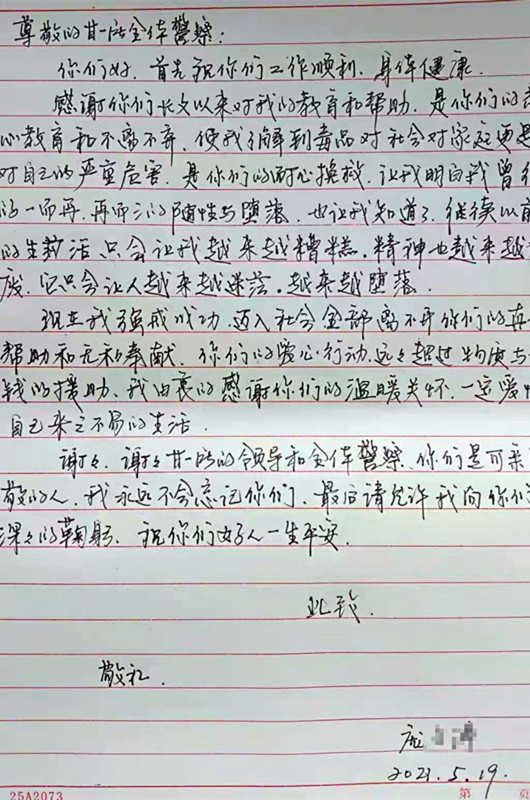 尊敬的甘一所全体警察:
你们好,首先祝你们工作顺利,身体健康.
感谢你们长久以来对我的教育和帮助.是你们的
心教育和不离不弃,使我了解到毒品对社会对家庭更是
对自己的严重危害,是你们的耐心挽救,让我明白我曾
的一而再,再而三的随性与堕落,也让我知道了,继续以前
的生活只会让我越来越糟糕,精神也越来越
废,它只会让人越来越迷茫,越来越堕落.
现在我强戒成功,迈入社会全部离不开你们的
帮助和无私奉献.你们的暖心行动,远々超过物质与
钱的援助,我由衷的感谢你们的温暖关怀.一定爱
自己来之不易的生活.
谢々,谢々甘一所的领导和全体警察,你们是可亲
敬的人,我永远不会忘记你们,最后请允许我向你们
深々的鞠躬,祝你们好人一生平安.
此致.
敬礼.
庞
2021.5.19.
25A2073
第 页